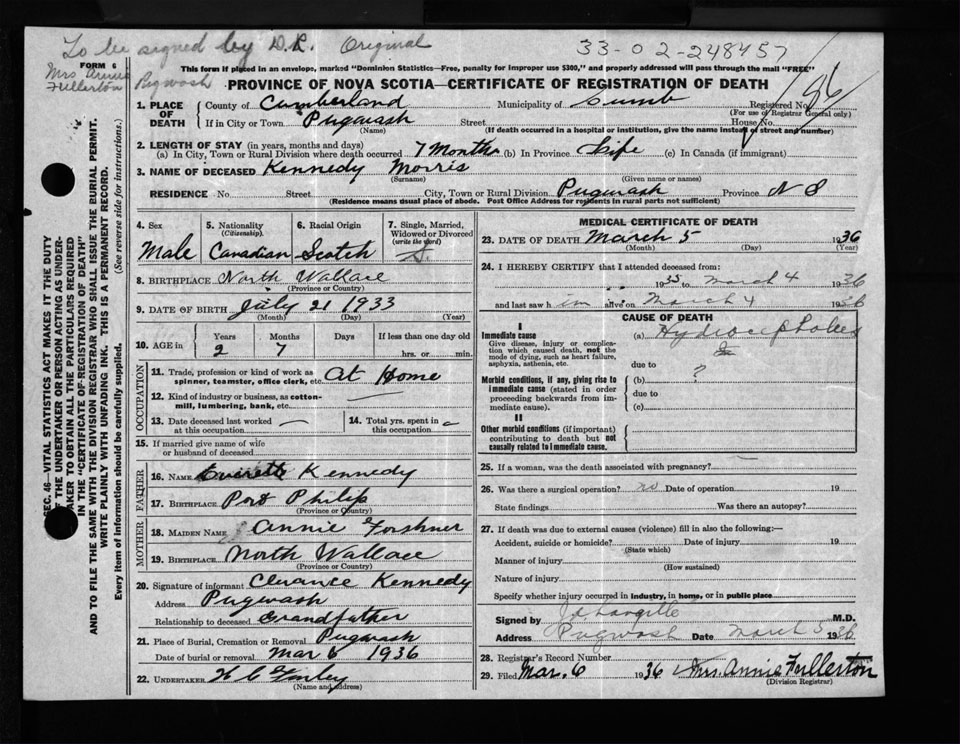 To be signed by D.R. Original
33-02-248457
FORM 6
Mrs Annie Fullerton Pugwash
This form if placed in an envelope, marked "Dominion Statistics—Free, penalty for improper use $300," and properly addressed will pass through the mail "FREE"
PROVINCE OF NOVA SCOTIA—CERTIFICATE OF REGISTRATION OF DEATH
SEC. 46—VITAL STATISTICS ACT MAKES IT THE DUTY
OF THE UNDERTAKER OR PERSON ACTING AS UNDER-
TAKER TO OBTAIN ALL THE PARTICULARS REQUIRED
IN THE "CERTIFICATE OF REGISTRATION OF DEATH"
AND TO FILE THE SAME WITH THE DIVISION REGISTRAR WHO SHALL ISSUE THE BURIAL PERMIT.
WRITE PLAINLY WITH UNFADING INK. THIS IS A PERMANENT RECORD.
Every item of information should be carefully supplied. (See reverse side for instructions.)
1. PLACE OF DEATH County of Cumberland Municipality of Cumb Registered No.
(For use of Registrar General only)
If in City or Town Pugwash Street House No.
(Name) (If death occurred in a hospital or institution, give the name instead of street and number)
2. LENGTH OF STAY (in years, months and days)
(a) In City, Town or Rural Division where death occurred 7 Months (b) In Province Life (c) In Canada (if immigrant)
3. NAME OF DECEASED Kennedy Morris
(Surname) (Given name or names)
RESIDENCE No. Street City, Town or Rural Division Pugwash Province N S
(Residence means usual place of abode. Post Office Address for residents in rural parts not sufficient)
4. Sex Male
5. Nationality (Citizenship) Canadian
6. Racial Origin Scotch
7. Single, Married, Widowed or Divorced (write the word) S.
8. BIRTHPLACE North Wallace
(Province or Country)
9. DATE OF BIRTH July 21 1933
(Month) (Day) (Year)
10. AGE in Years Months Days If less than one day old
2 7 hrs. or min.
OCCUPATION
11. Trade, profession or kind of work as spinner, teamster, office clerk, etc. At Home
12. Kind of industry or business, as cotton-mill, lumbering, bank, etc. —
13. Date deceased last worked at this occupation —
14. Total yrs. spent in this occupation
15. If married give name of wife or husband of deceased
FATHER
16. NAME Everett Kennedy
17. BIRTHPLACE Port Philip
(Province or Country)
MOTHER
18. MAIDEN NAME Annie Forshner
19. BIRTHPLACE North Wallace
(Province or Country)
20. Signature of informant Clerance Kennedy
Address Pugwash
Relationship to deceased Grandfather
21. Place of Burial, Cremation or Removal Pugwash
Date of burial or removal Mar 6 1936
22. UNDERTAKER
(Name and address)
MEDICAL CERTIFICATE OF DEATH
23. DATE OF DEATH March 5 1936
(Month) (Day) (Year)
24. I HEREBY CERTIFY that I attended deceased from:
1935 to March 4 1936
and last saw h im alive on March 4 1936
CAUSE OF DEATH
I
Immediate cause (a) Hydrocepholus
Give disease, injury or complication which caused death, not the mode of dying, such as heart failure, asphyxia, asthenia, etc. due to
Morbid conditions, if any, giving rise to immediate cause (stated in order proceeding backwards from immediate cause). (b) ?
due to
(c)
II
Other morbid conditions (if important) contributing to death but not causally related to immediate cause.
25. If a woman, was the death associated with pregnancy? —
26. Was there a surgical operation? no Date of operation 19
State findings Was there an autopsy?
27. If death was due to external causes (violence) fill in also the following:—
Accident, suicide or homicide? Date of injury 19
(State which)
Manner of injury
(How sustained)
Nature of injury
Specify whether injury occurred in industry, in home, or in public place
Signed by M.D.
Address Pugwash Date March 5 1936
28. Registrar's Record Number
29. Filed Mar. 6 1936 Mrs. Annie Fullerton
(Division Registrar)